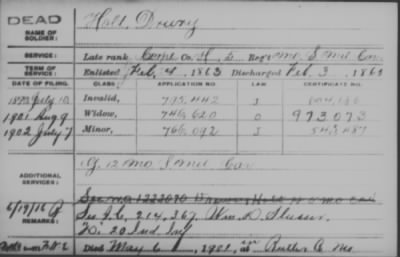 DEAD
NAME OF SOLDIER: Holt Drury
SERVICE: Late rank Corpl Co. H, 5 Reg't Mo. S. Mil. Cav.
TERM OF SERVICE: Enlisted Feb. 4, 1863 Discharged Feb. 3, 1865
DATE OF FILING. CLASS APPLICATION NO. LAW CERTIFICATE NO.
July 10 Invalid, 795,442
1901 Aug 9 Widow, 746,620 973073
1902 July 7 Minor, 766,092 543,487
ADDITIONAL SERVICES: G. 12 Mo. S. Mil. Cav
REMARKS:
6/19/16
See I.C. 214,367. Wm. D. Slusser.
Wi: 20 Ind. Inf
Died May 6, 1901, in Butler Co. Mo.